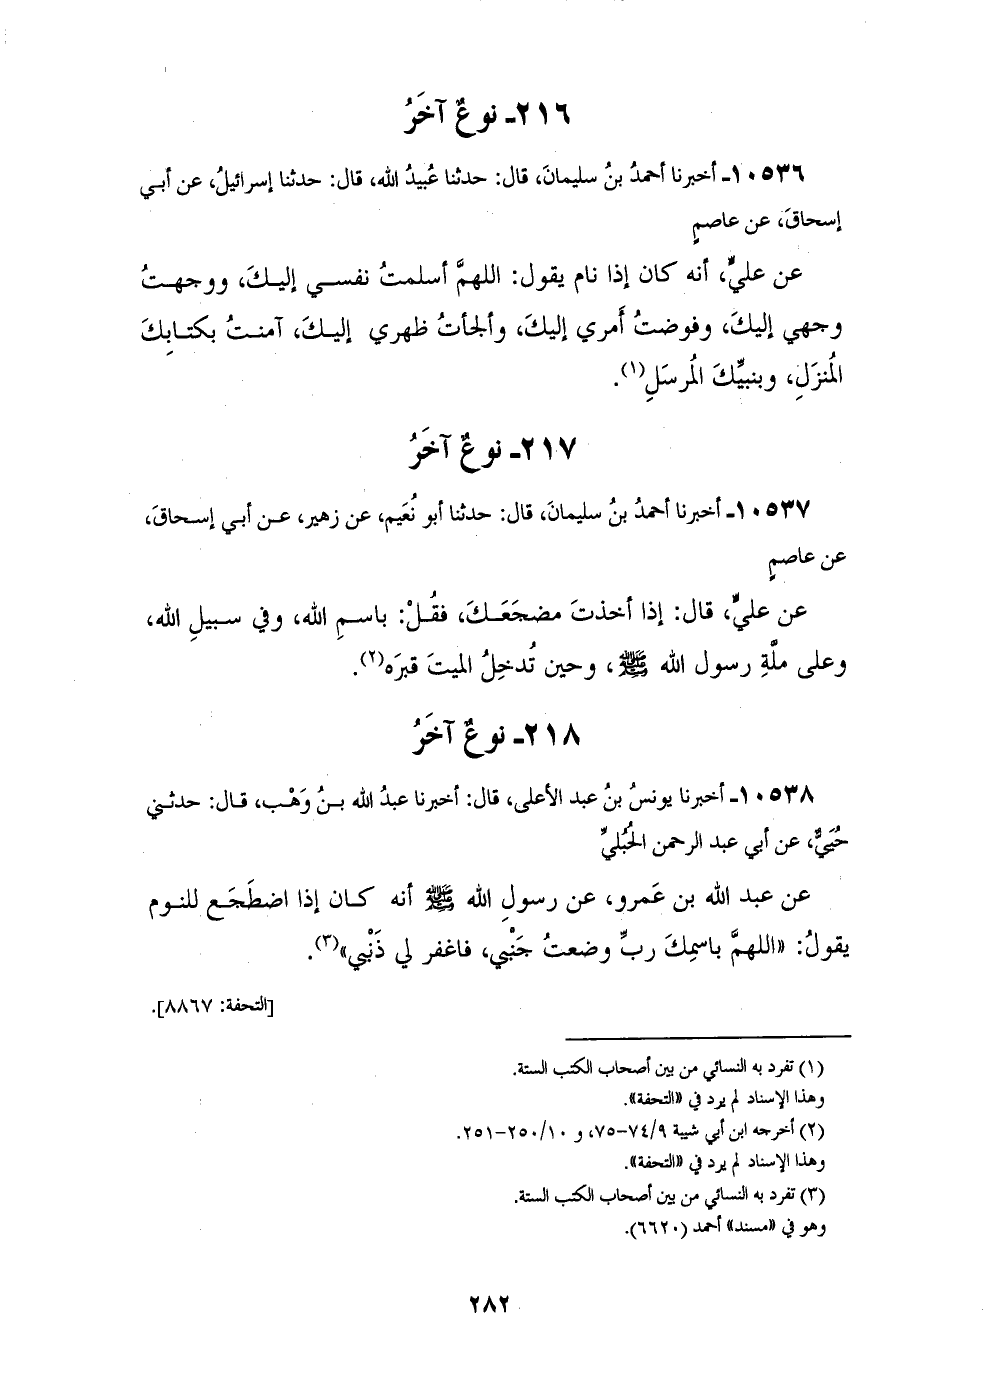 ٢١٦ـ نوعٌ آخَرُ
١٠٥٣٦ـ أخبرنا أحمدُ بنُ سليمانَ، قال: حدثنا عُبيدُ الله، قال: حدثنا إسرائيلُ، عن أبي
إسحاقَ، عن عاصمٍ
عن عليٍّ، أنه كان إذا نام يقول: اللهمَّ أسلمتُ نفسي إليكَ، ووجهتُ
وجهي إليكَ، وفوضتُ أَمري إليكَ، وألجأتُ ظهري إليكَ، آمنتُ بكتابِكَ
المُنزَلِ، وبنبيِّكَ المُرسَلِ(١).
٢١٧ـ نوعٌ آخَرُ
١٠٥٣٧ـ أخبرنا أحمدُ بنُ سليمانَ، قال: حدثنا أبو نُعَيم، عن زهير، عن أبي إسحاقَ،
عن عاصمٍ
عن عليٍّ، قال: إذا أخذتَ مضجَعَكَ، فقُلْ: باسمِ الله، وفي سبيلِ الله،
وعلى ملَّةِ رسول الله ﷺ، وحين تُدخِلُ الميتَ قبرَه(٢).
٢١٨ـ نوعٌ آخَرُ
١٠٥٣٨ـ أخبرنا يونسُ بنُ عبد الأعلى، قال: أخبرنا عبدُ الله بنُ وَهْب، قال: حدثني
حُيَيٌّ، عن أبي عبد الرحمن الحُبُليِّ
عن عبد الله بن عَمرو، عن رسولِ الله ﷺ أنه كان إذا اضطَجَع للنوم
يقولُ: «اللهمَّ باسمِكَ ربِّ وضعتُ جَنْبي، فاغفر لي ذَنْبي»(٣).
[التحفة: ٨٨٦٧].
(١) تفرد به النسائي من بين أصحاب الكتب الستة.
وهذا الإسناد لم يرد في «التحفة».
(٢) أخرجه ابن أبي شيبة ٧٤/٩-٧٥، و ٢٥٠/١٠-٢٥١.
وهذا الإسناد لم يرد في «التحفة».
(٣) تفرد به النسائي من بين أصحاب الكتب الستة.
وهو في «مسند» أحمد (٦٦٢٠).
٢٨٢